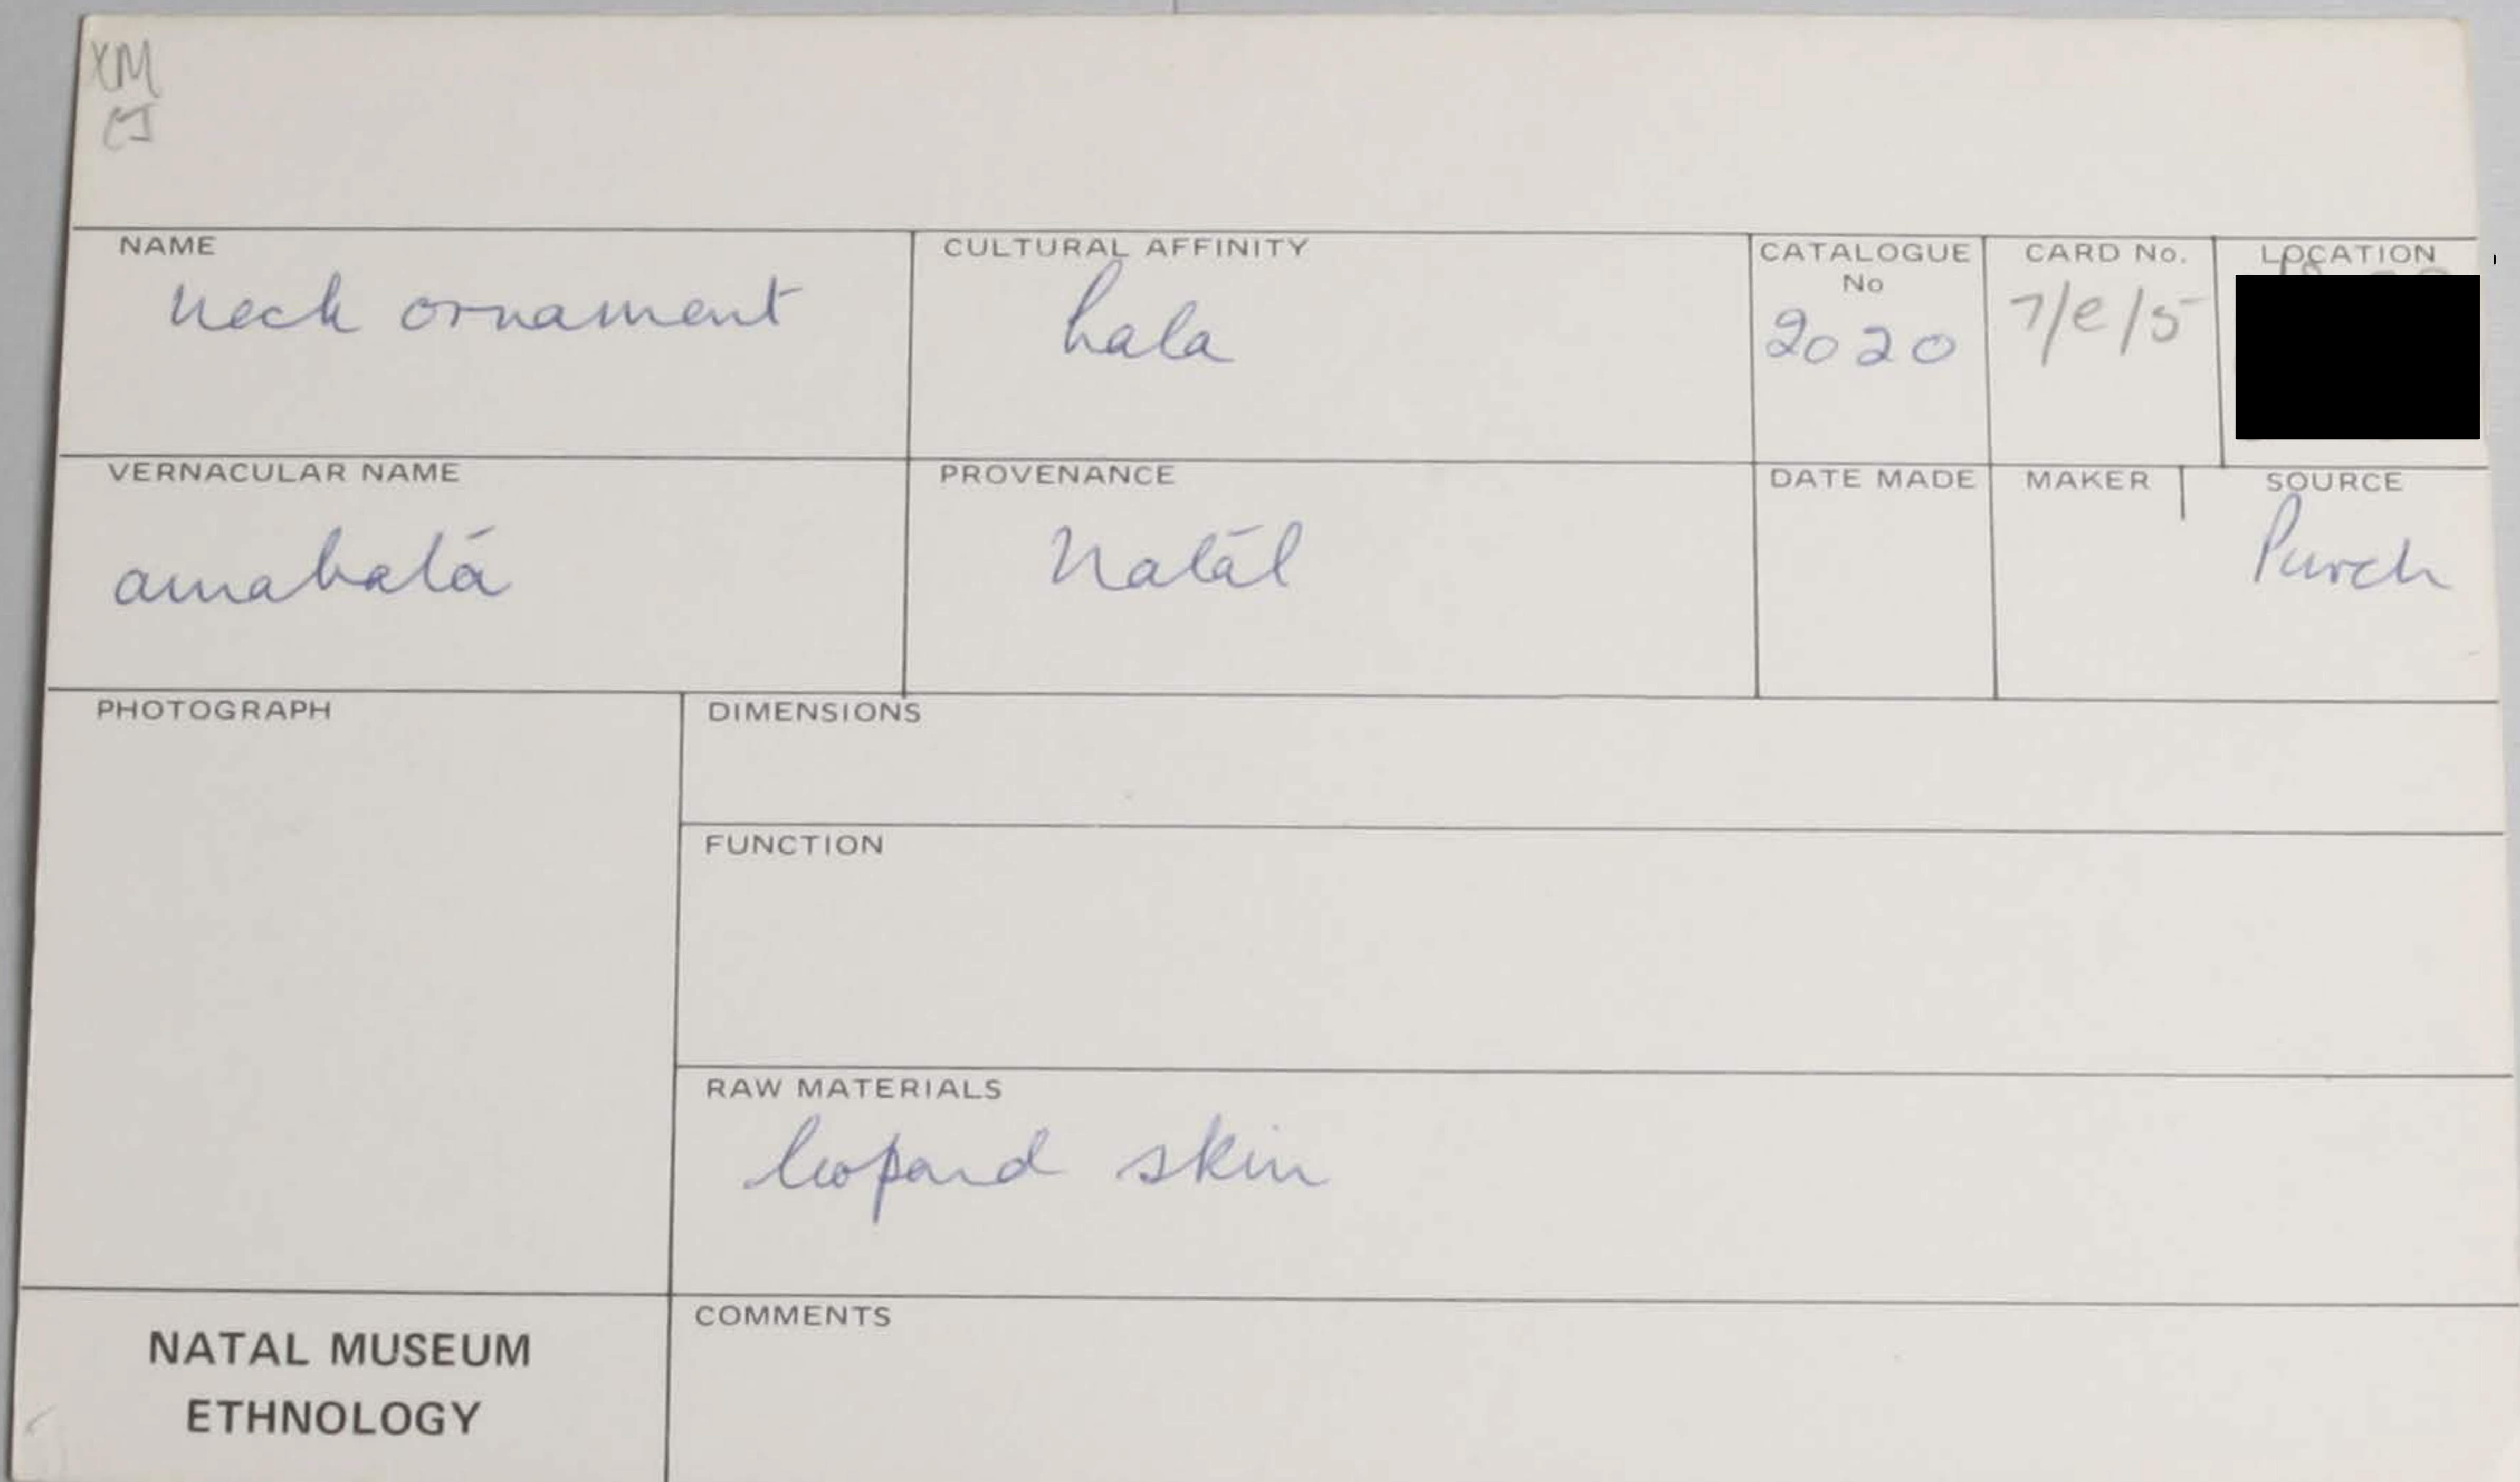 XM
CJ
NAME
neck ornament
CULTURAL AFFINITY
hala
CATALOGUE No
2020
CARD No.
7/e/5
LOCATION
VERNACULAR NAME
amabatá
PROVENANCE
Natal
DATE MADE
MAKER
SOURCE
Purch
PHOTOGRAPH
DIMENSIONS
FUNCTION
RAW MATERIALS
leopard skin
COMMENTS
NATAL MUSEUM
ETHNOLOGY